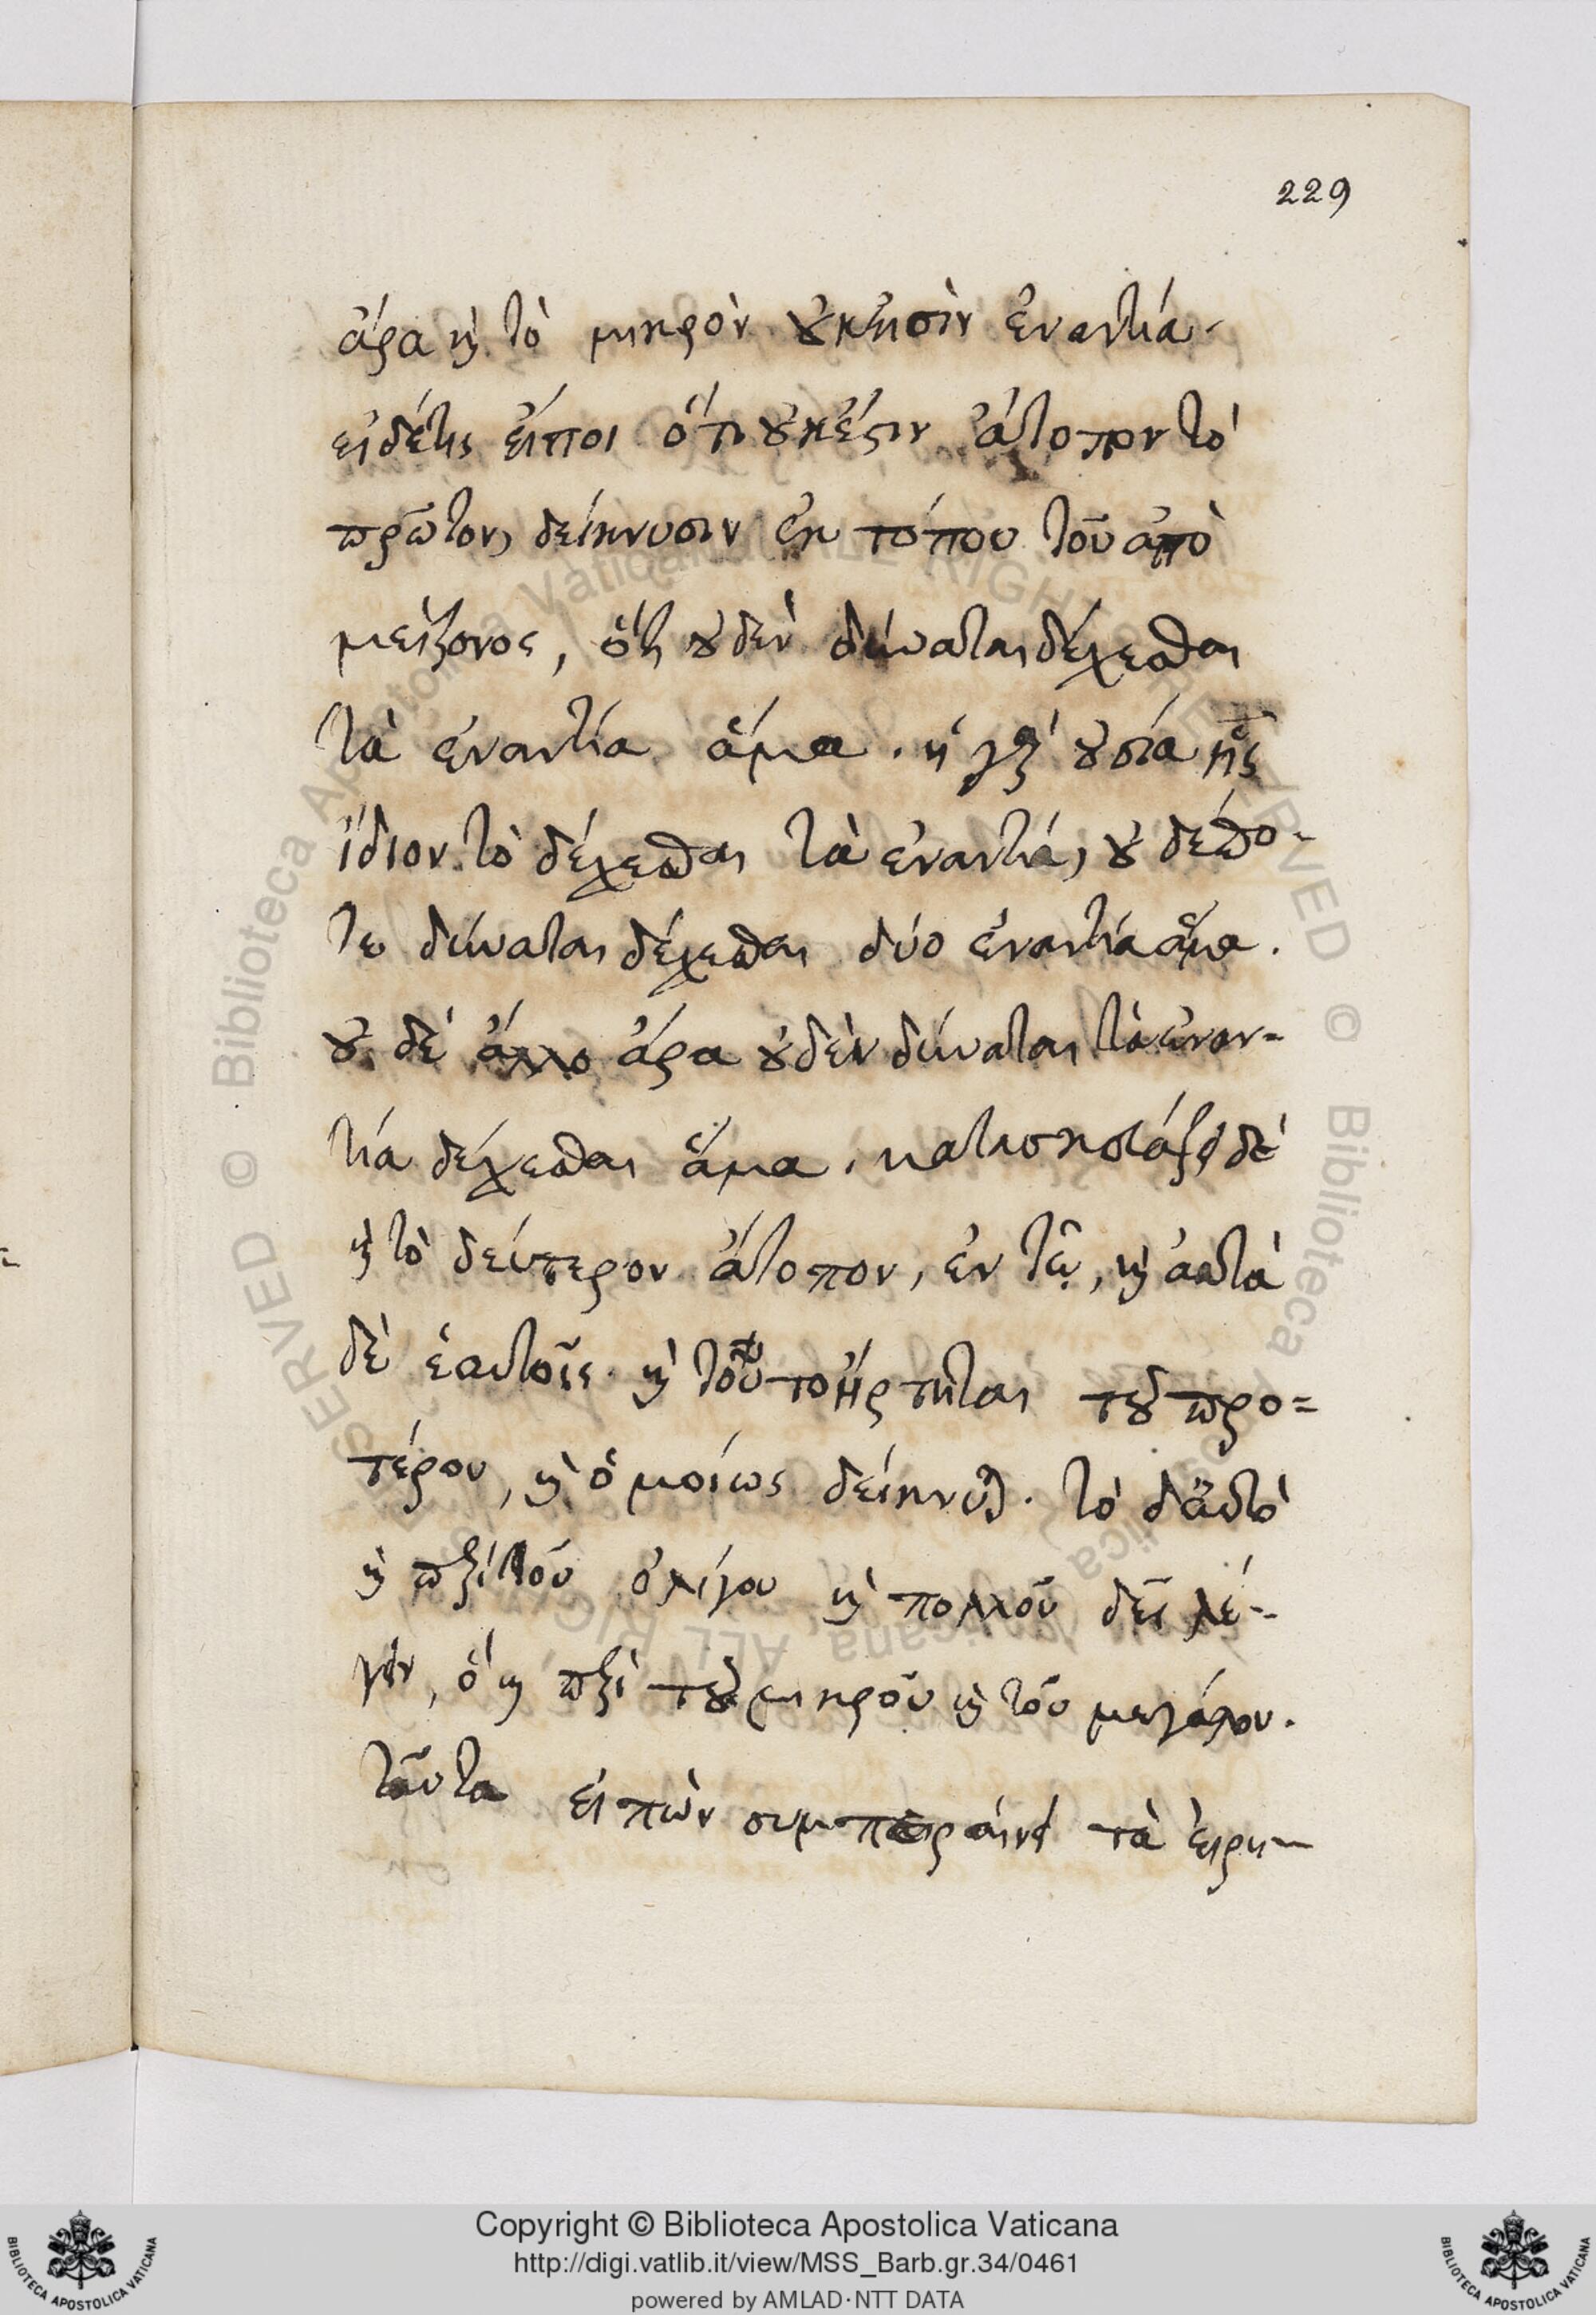 229
ἄρα καὶ τὸ μικρὸν οὐκ εἰσὶν ἐναντία.
εἰ δέ τις εἴποι ὅτι οὐκ ἔστιν ἄτοπον τὸ
πρῶτον, δείκνυσιν ἐκ τόπου τοῦ ἀπὸ
μείζονος, ὅτι οὐδὲν δύναται δέχεσθαι
τὰ ἐναντία ἅμα. ἡ γὰρ οὐσία ἧς
ἴδιον τὸ δέχεσθαι τὰ ἐναντία, οὐδέπο-
τε δύναται δέχεσθαι δύο ἐναντία ἅμα.
οὐδὲ ἄλλο ἄρα οὐδὲν δύναται τὰ ἐναν-
τία δέχεσθαι ἅμα. κατασκευάζει δὲ
καὶ τὸ δεύτερον ἄτοπον, ἐν τῷ, καὶ αὐτὰ
δὲ ἑαυτοῖς. καὶ τοῦτο ἤρτηται τοῦ προ=
τέρου, καὶ ὁμοίως δείκνυται. τὸ δ' αὐτὸ
καὶ περὶ τοῦ ὀλίγου καὶ πολλοῦ δεῖ λέ-
γειν, ὃ καὶ περὶ τοῦ μικροῦ καὶ τοῦ μεγάλου.
ταῦτα εἰπὼν συμπεραίνει τὰ εἰρη-
Copyright © Biblioteca Apostolica Vaticana
http://digi.vatlib.it/view/MSS_Barb.gr.34/0461
powered by AMLAD·NTT DATA